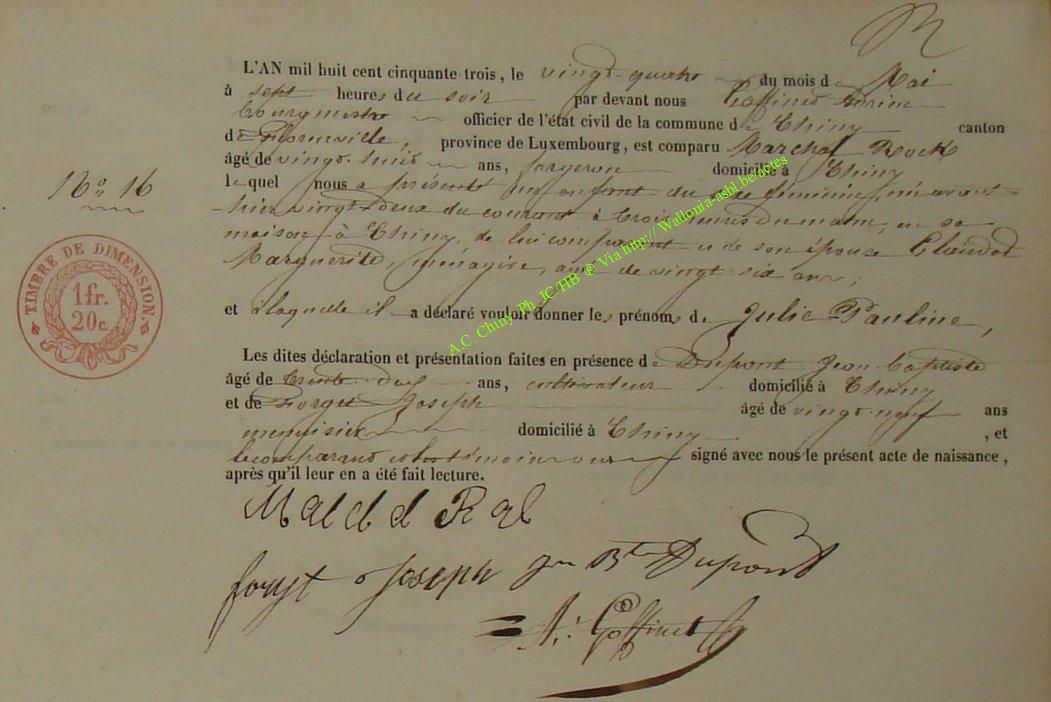 L'AN mil huit cent cinquante trois, le vingt-quatre du mois de Mai
à sept heures du soir par devant nous Goffinet
Bourgmestre officier de l'état civil de la commune de Chiny canton
de Florenville, province de Luxembourg, est comparu Marchal Rock
âgé de vingt-huit ans, forgeron domicilié à Chiny
lequel nous a présenté un enfant du sexe féminin, né avant-
hier vingt-deux du courant à trois heures du matin, en sa
maison à Chiny, de lui comparant et de son épouse Claudot
Marguerite, ménagère, âgée de vingt six ans,
et à laquelle il a déclaré vouloir donner les prénoms de Julie Pauline,
Les dites déclaration et présentation faites en présence de Dupont Jean Baptiste
âgé de trente-deux ans, cultivateur domicilié à Chiny
et de Forget Joseph âgé de vingt-neuf ans
menuisier domicilié à Chiny , et
le comparant et les témoins ont signé avec nous le présent acte de naissance,
après qu'il leur en a été fait lecture.
No 16
TIMBRE DE DIMENSION.
1 fr.
20 c.
A.C. Chiny Ph. JC/HB ® Via http:// Wallonia-asbl.be/actes
forget Joseph Jn Bte Dupont
Goffinet